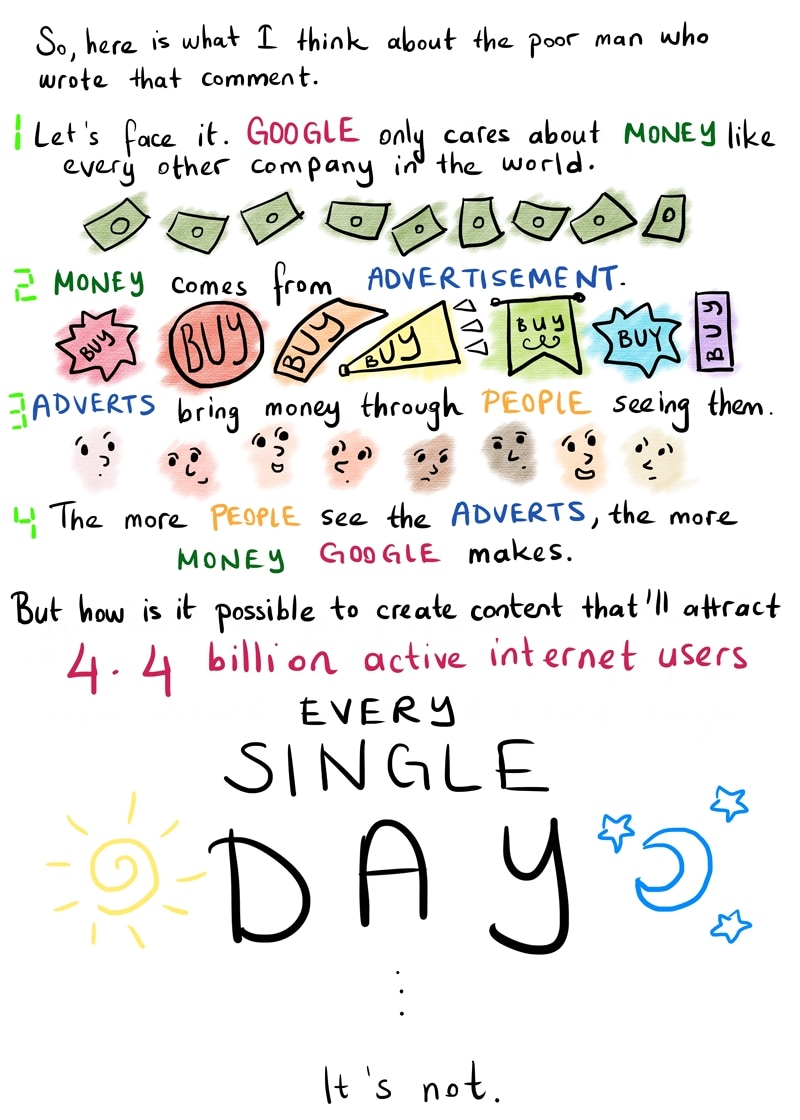 So, here is what I think about the poor man who
wrote that comment.
1 Let's face it. GOOGLE only cares about MONEY like
every other company in the world.
2 MONEY comes from ADVERTISEMENT.
BUY BUY BUY BUY BUY BUY BUY
3 ADVERTS bring money through PEOPLE seeing them.
4 The more PEOPLE see the ADVERTS, the more
MONEY GOOGLE makes.
But how is it possible to create content that'll attract
4.4 billion active internet users
EVERY
SINGLE
DAY
.
.
.
It's not.